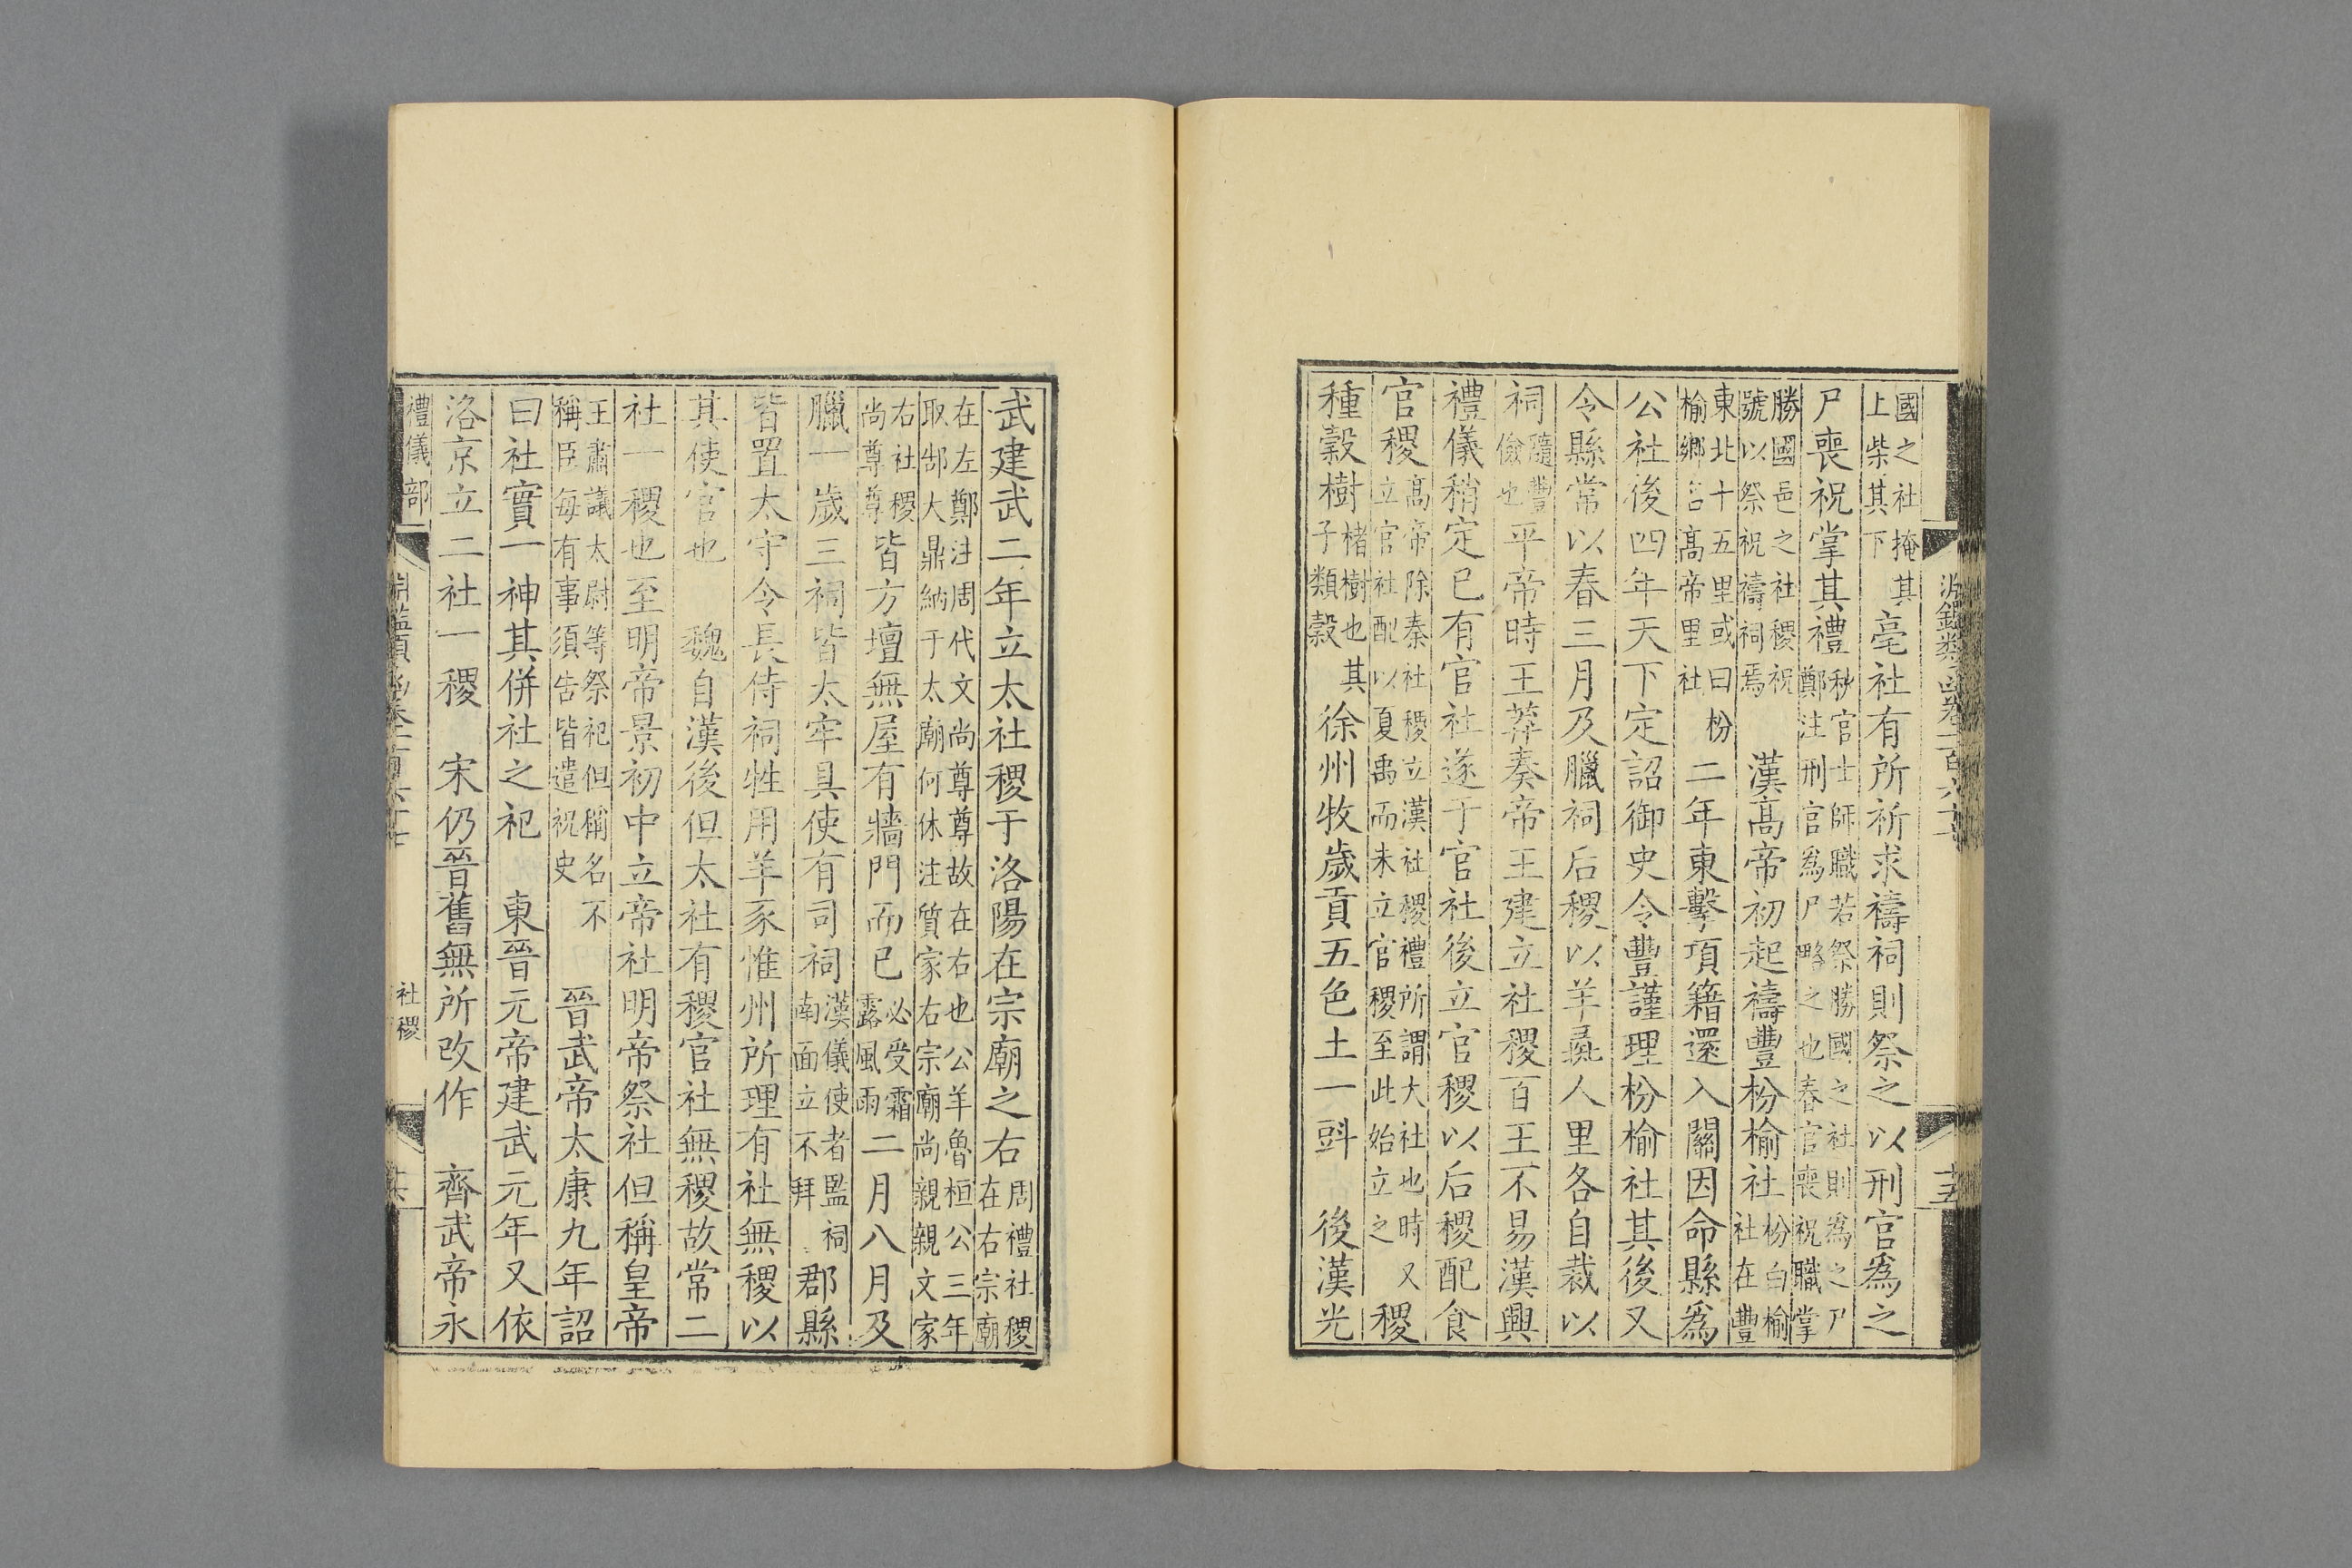 國之社掩其上柴其下亳社有所祈求禱祠則祭之以刑官爲之
尸喪祝掌其禮秋官士師職若祭勝國之社則爲之尸鄭注刑官爲尸略之也春官喪祝職掌
勝國邑之社稷祝號以祭祝禱祠焉漢高帝初起禱豐枌榆社枌白榆社在豐
東北十五里或曰枌榆鄉名高帝里社二年東擊項籍還入關因命縣爲
公社後四年天下定詔御史令豐謹理枌榆社其後又
令縣常以春三月及臘祠后稷以羊彘人里各自裁以
祠隨豐儉也平帝時王莽奏帝王建立社稷百王不易漢興
禮儀稍定已有官社遂于官社後立官稷以后稷配食
官稷高帝除秦社稷立漢社稷禮所謂大社也時又立官社配以夏禹而未立官稷至此始立之稷
種穀樹楮樹也其子類穀徐州牧歲貢五色土一㪷　後漢光
武建武二年立太社稷于洛陽在宗廟之右周禮社稷在右宗廟
在左鄭注周代文尚尊尊故在右也公羊魯桓公三年取郜大鼎納于太廟何休注質家右宗廟尚親親文家
右社稷尚尊尊皆方壇無屋有牆門而已必受霜露風雨二月八月及
臘一歲三祠皆太牢具使有司祠漢儀使者監祠南面立不拜郡縣
皆置太守令長侍祠牲用羊豕惟州所理有社無稷以
其使官也　魏自漢後但太社有稷官社無稷故常二
社一稷也至明帝景初中立帝社明帝祭社但稱皇帝
王肅議太尉等祭祀但稱名不稱臣每有事須告皆遣祝史晉武帝太康九年詔
曰社實一神其併社之祀　東晉元帝建武元年又依
洛京立二社一稷　宋仍晉舊無所改作　齊武帝永
禮儀部
社稷